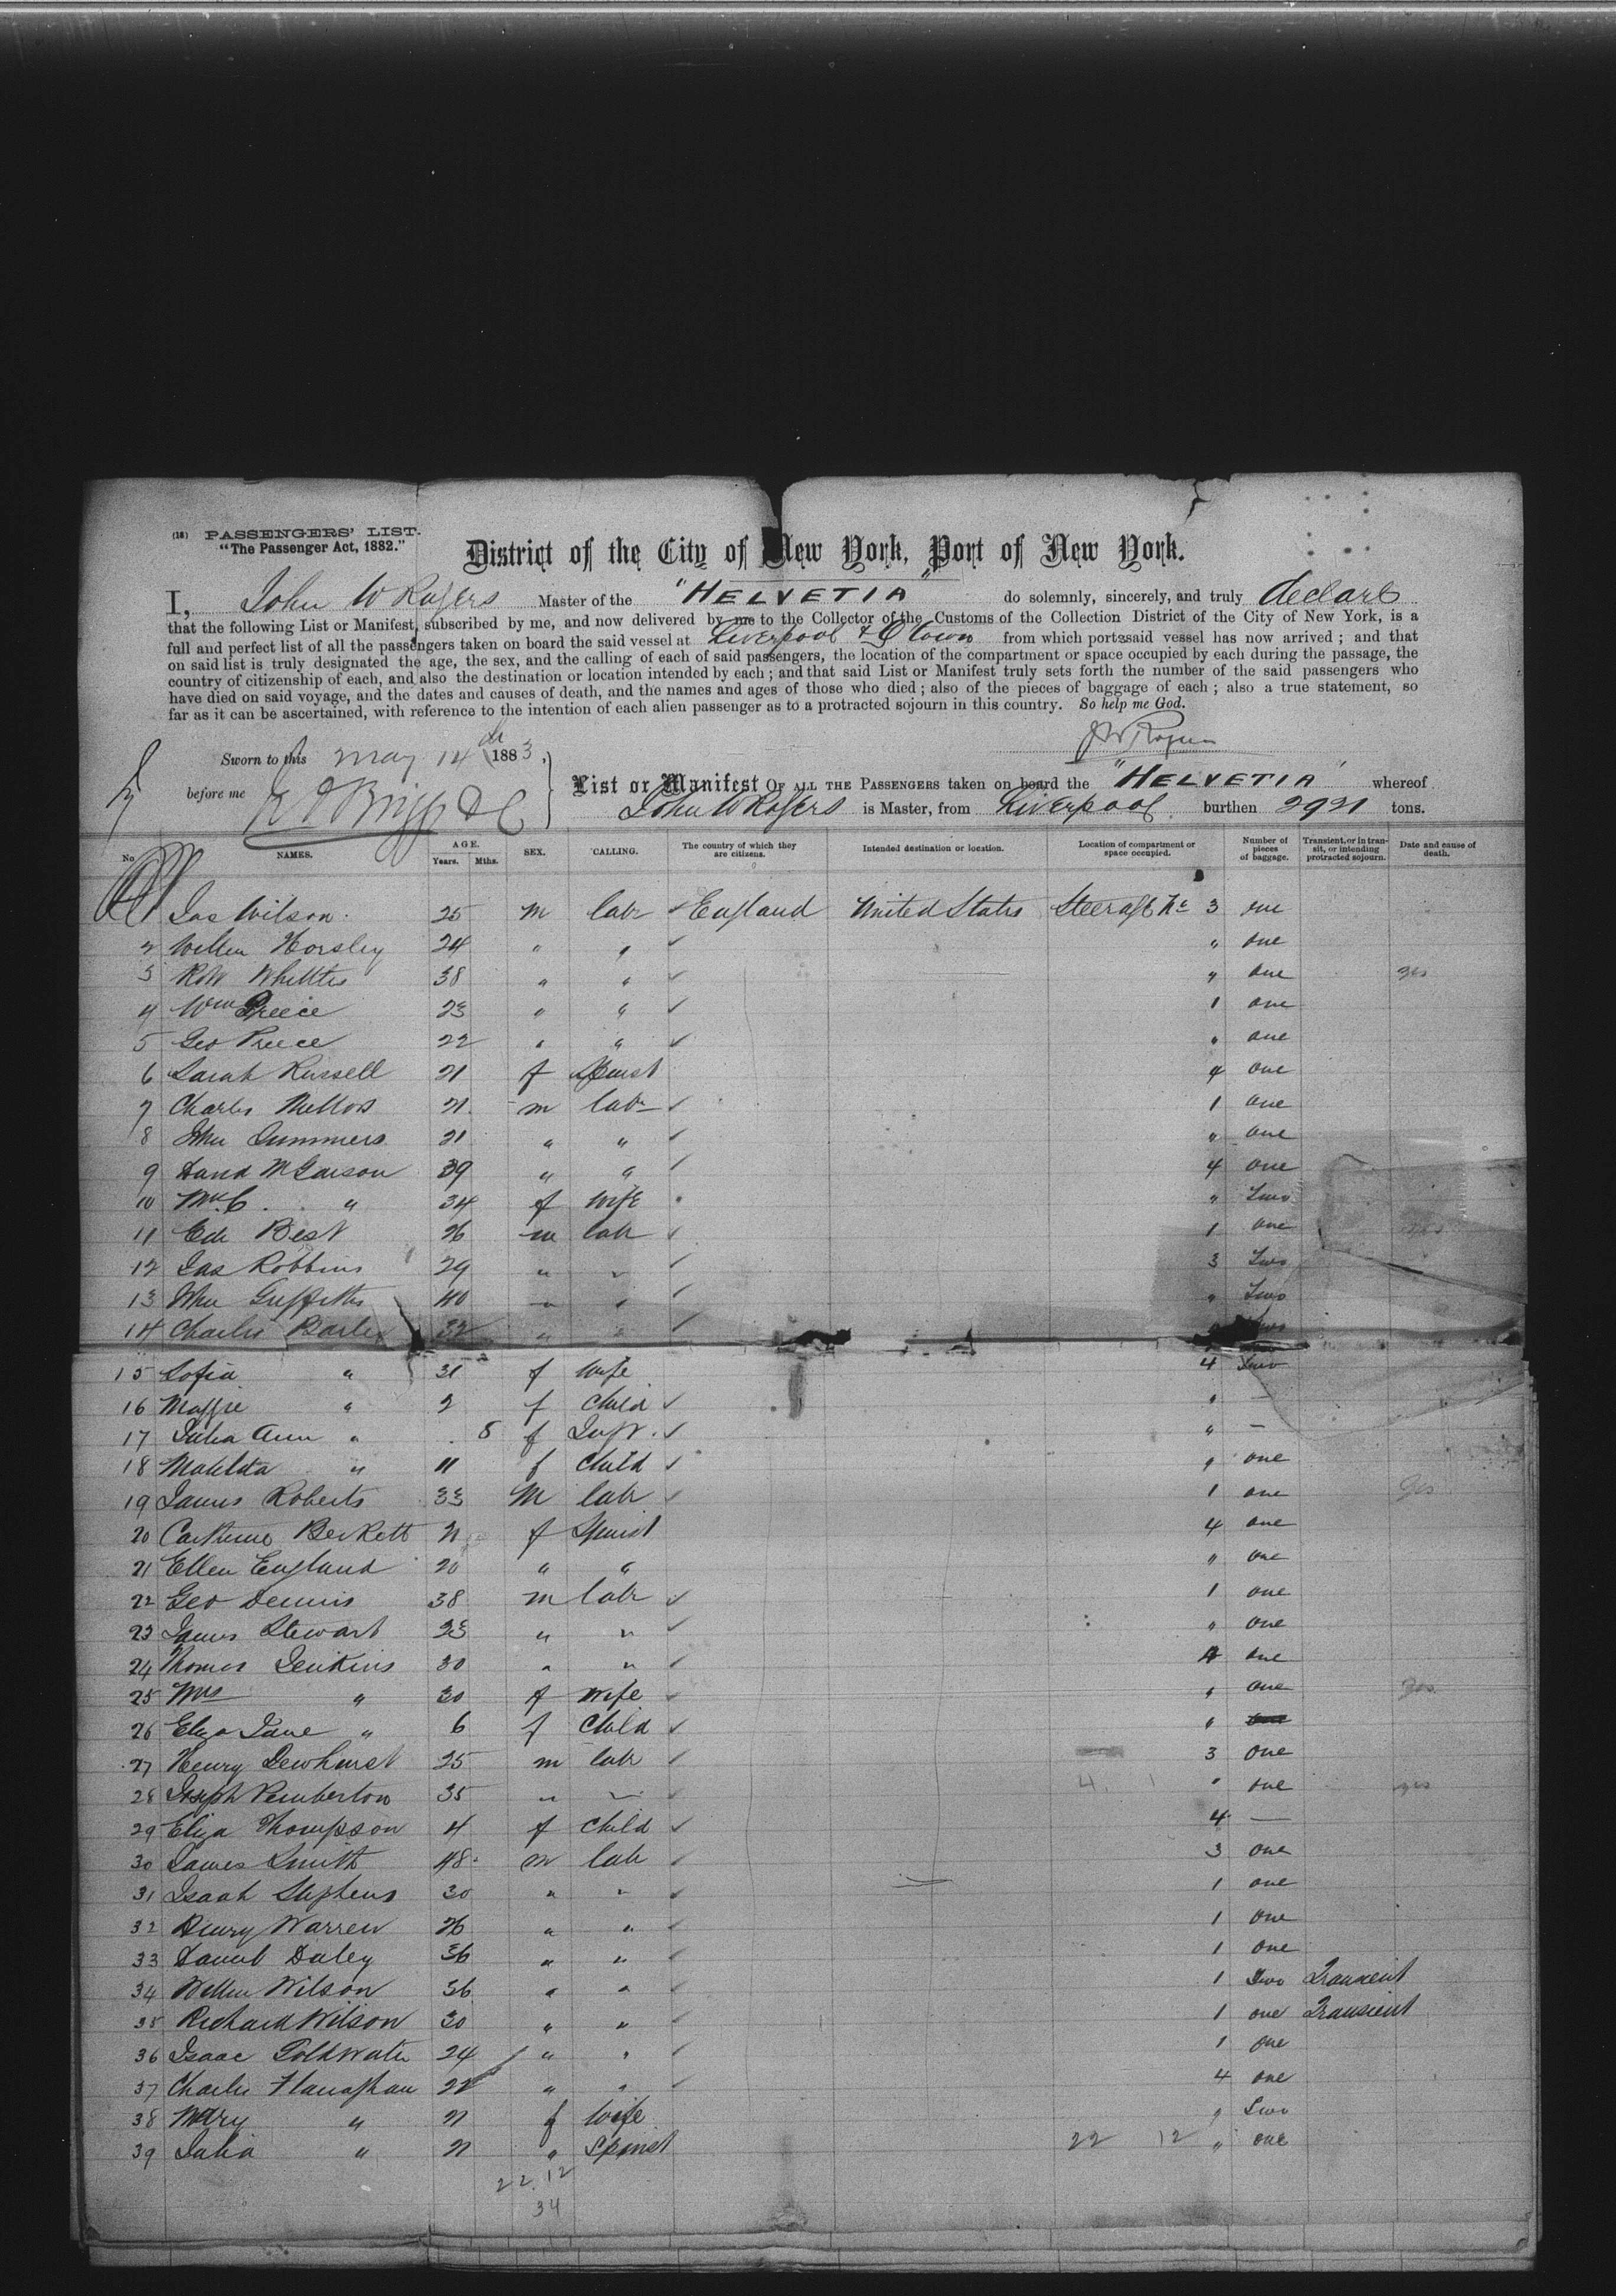 (18) PASSENGERS' LIST.
"The Passenger Act, 1882."
District of the City of New York, Port of New York.
I, John W Rogers Master of the "HELVETIA" do solemnly, sincerely, and truly declare
that the following List or Manifest, subscribed by me, and now delivered by me to the Collector of the Customs of the Collection District of the City of New York, is a
full and perfect list of all the passengers taken on board the said vessel at Liverpool & Q town from which port said vessel has now arrived ; and that
on said list is truly designated the age, the sex, and the calling of each of said passengers, the location of the compartment or space occupied by each during the passage, the
country of citizenship of each, and also the destination or location intended by each ; and that said List or Manifest truly sets forth the number of the said passengers who
have died on said voyage, and the dates and causes of death, and the names and ages of those who died ; also of the pieces of baggage of each ; also a true statement, so
far as it can be ascertained, with reference to the intention of each alien passenger as to a protracted sojourn in this country. So help me God.
J W Rogers
Sworn to this May 14th 1883,
before me
List or Manifest OF ALL THE PASSENGERS taken on board the "HELVETIA" whereof
John W Rogers is Master, from Liverpool burthen 2921 tons.
No. NAMES. AGE. Years. Mths. SEX. CALLING. The country of which they are citizens. Intended destination or location. Location of compartment or space occupied. Number of pieces of baggage. Transient, or in transit, or intending protracted sojourn. Date and cause of death.
1 Jas Wilson 25 m labr England United States Steerage No 3 one
2 Horsley 24 " " " one
3 38 " " " one yes
4 Wm Preece 23 " " 1 one
5 Geo Preece 22 " " " one
6 Sarah Russell 21 f Spinst 4 one
7 Charles 21 m labr 1 one
8 John Summers 21 " " " one
9 David 39 " " 4 one
10 " 34 f wife " Two
11 Edw Best 26 m labr 1 one yes
12 Jas Robbins 29 " " 3 Two
13 John Griffiths 40 " " " Two
14 Charles 32 " "
15 Sofia " 31 f wife 4 Two
16 Maggie " 2 f child " —
17 Julia Ann " 8 f Inft. " —
18 Matilda " 11 f child " one
19 James Roberts 33 m labr 1 one yes
20 Beckett 21 f Spinst 4 one
21 Ellen England 20 " " " one
22 Geo Dennis 38 m labr 1 one
23 James Stewart 23 " " " one
24 Thomas Jenkins 30 " " 4 one
25 Mrs " 30 f wife " one yes
26 Eliza Jane " 6 f child "
27 Henry Dewhurst 25 m labr 3 one
28 Joseph Pemberton 35 " " 4. 1 " one yes
29 Eliza Thompson 4 f child 4 —
30 James Smith 48 m labr 3 one
31 Isaah Stephens 30 " " 1 one
32 Henry Warren 26 " " 1 one
33 Daley 36 " " 1 one
34 Wilson 36 " " 1 two Transient
35 Richard Wilson 30 " " 1 one Transient
36 Isaac Goldwater 24 " " 1 one
37 Charles Flanaghan 22 " " 4 one
38 Mary " 21 f wife " Two
39 Julia " 21 " Spinst 22 12 " one
22.12
34